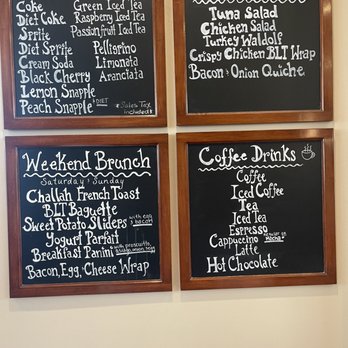 Coke
Diet Coke
Sprite
Diet Sprite
Cream Soda
Black Cherry
Lemon Snapple
Peach Snapple & DIET
Green Iced Tea
Raspberry Iced Tea
Passionfruit Iced Tea
Pellegrino
Limonata
Aranciata
* Sales Tax
included *
Tuna Salad
Chicken Salad
Turkey Waldorf
Crispy Chicken BLT Wrap
Bacon & Onion Quiche
Weekend Brunch
Saturday & Sunday
Challah French Toast
BLT Baguette
Sweet Potato Sliders with egg & bacon
Yogurt Parfait
Breakfast Panini with prosciutto,
Bacon, Egg, & Cheese Wrap
Coffee Drinks
Coffee
Iced Coffee
Tea
Iced Tea
Espresso
Cappuccino
Latte
Hot Chocolate